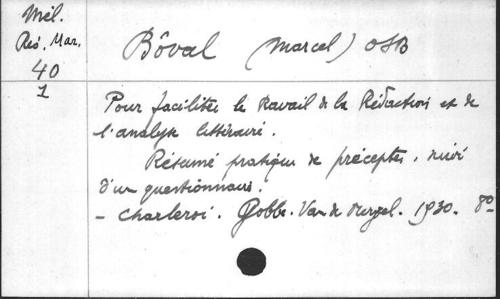 Mél.
Rés. Mar.
40
1
Bôval (Marcel) OSB
Pour faciliter le travail de la Rédaction et de
l'analyse littéraire.
Résumé pratique de préceptes, suivi
d'un questionnaire.
- Charleroi. Gobbe. Van de 1930. 8°